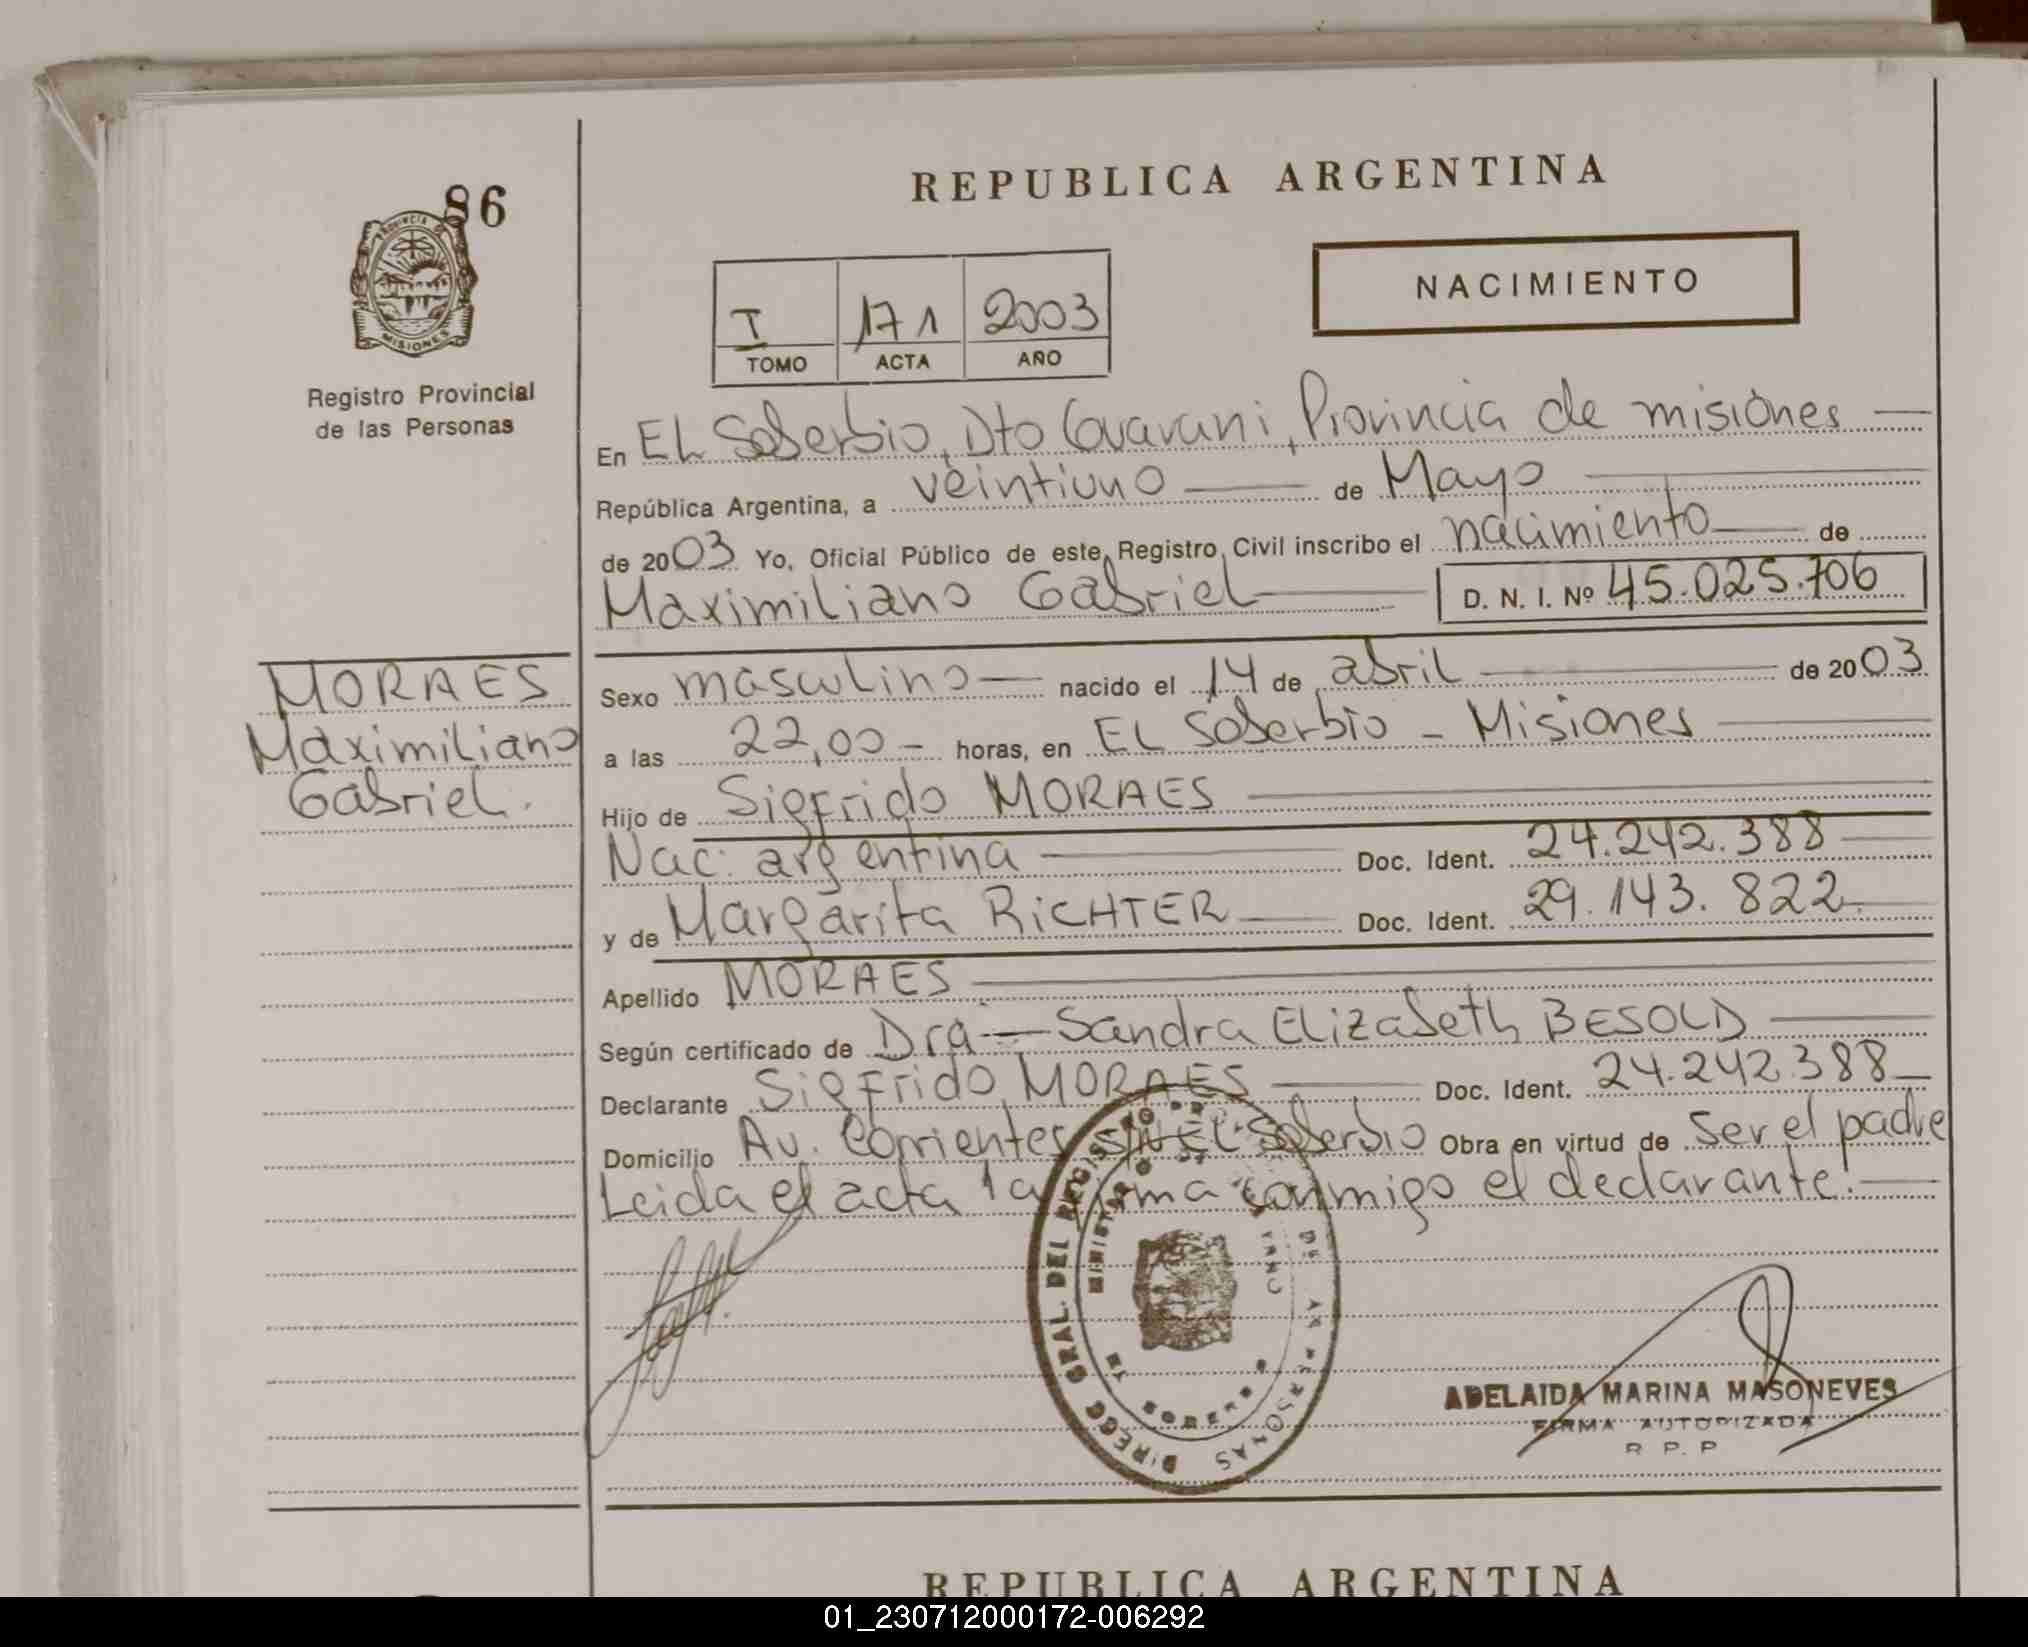 86
PROVINCIA DE
MISIONES
Registro Provincial
de las Personas
REPUBLICA ARGENTINA
NACIMIENTO
I 171 2003
TOMO ACTA AÑO
En EL Soberbio, Dto Guarani, Provincia de misiones
República Argentina, a veintiuno de Mayo
de 2003 Yo, Oficial Público de este Registro Civil inscribo el nacimiento de
Maximiliano Gabriel D. N. I. Nº 45.025.706
MORAES
Maximiliano
Gabriel.
Sexo masculino nacido el 14 de abril de 2003
a las 22,00 - horas, en EL Soberbio - Misiones
Hijo de Sigfrido MORAES
Nac: argentina Doc. Ident. 24.242.388
y de Margarita RICHTER Doc. Ident. 29.143.822
Apellido MORAES
Según certificado de Dra - Sandra Elizabeth BESOLD
Declarante Sigfrido MORAES Doc. Ident. 24.242.388
Domicilio Av. Corrientes S/N EL Soberbio Obra en virtud de ser el padre
Leida el acta la firma conmigo el declarante.
DIREC. GRAL. DEL REGISTRO DE LAS PERSONAS
ADELAIDA MARINA MASONEVES
FIRMA AUTORIZADA
R. P. P
REPUBLICA ARGENTINA
01_230712000172-006292